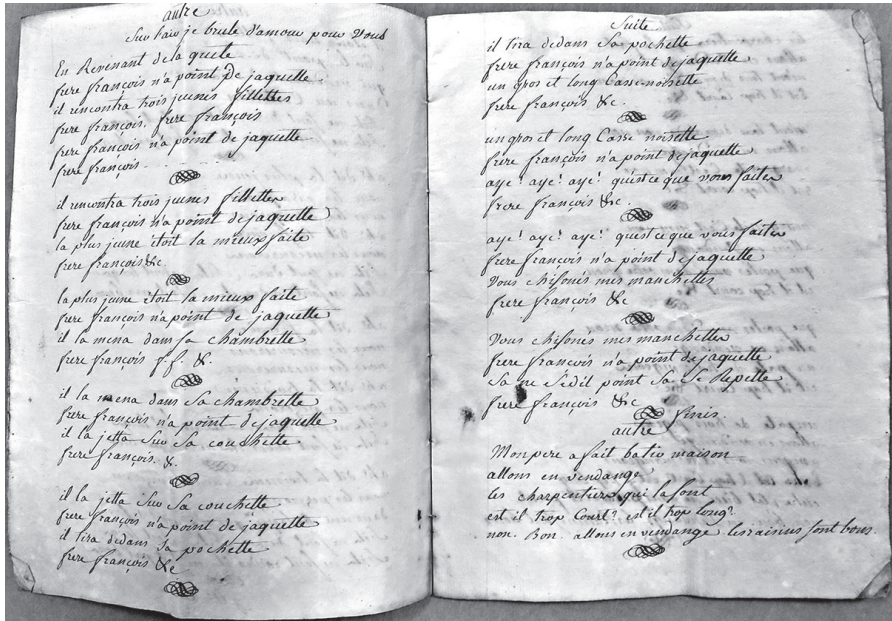 autre
Sur l'air je brule d'amour pour Vous
En Revenant de la quete
frere françois n'a point de jaquette
il rencontra trois jeunes fillettes
frere françois. frere françois
frere françois n'a point de jaquette
frere françois
il rencontra trois jeunes fillettes
frere françois n'a point de jaquette
la plus jeune étoit la mieux faite
frere françois &c.
la plus jeune étoit la mieux faite
frere françois n'a point de jaquette
il la mena dans sa chambrette
frere françois f.f. &.
il la mena dans Sa chambrette
frere françois n'a point de jaquette
il la jetta Sur Sa couchette
frere françois. &.
il la jetta Sur Sa couchette
frere françois n'a point de jaquette
il tira dedans Sa pochette
frere françois &c
Suite
il tira dedans Sa pochette
frere françois n'a point de jaquette
un gros et long Casse-noisette
frere françois &c.
un gros et long Casse noisette
frere françois n'a point de jaquette
aye! aye! aye! quest ce que vous faites
frere françois &c.
aye! aye! aye! quest ce que vous faites
frere francois n'a point de jaquette
Vous chifonés mes manchettes
frere françois &c
Vous chifonés mes manchettes
frere françois n'a point de jaquette
Sa ne Sédil point Sa Se Repette
frere françois &c
finis.
autre
Mon pere a fait batir maison
allons en vendange
les charpentiers qui la font
est il trop Court? est il trop long?
non. Bon. allons en vendange les raisins sont bons.